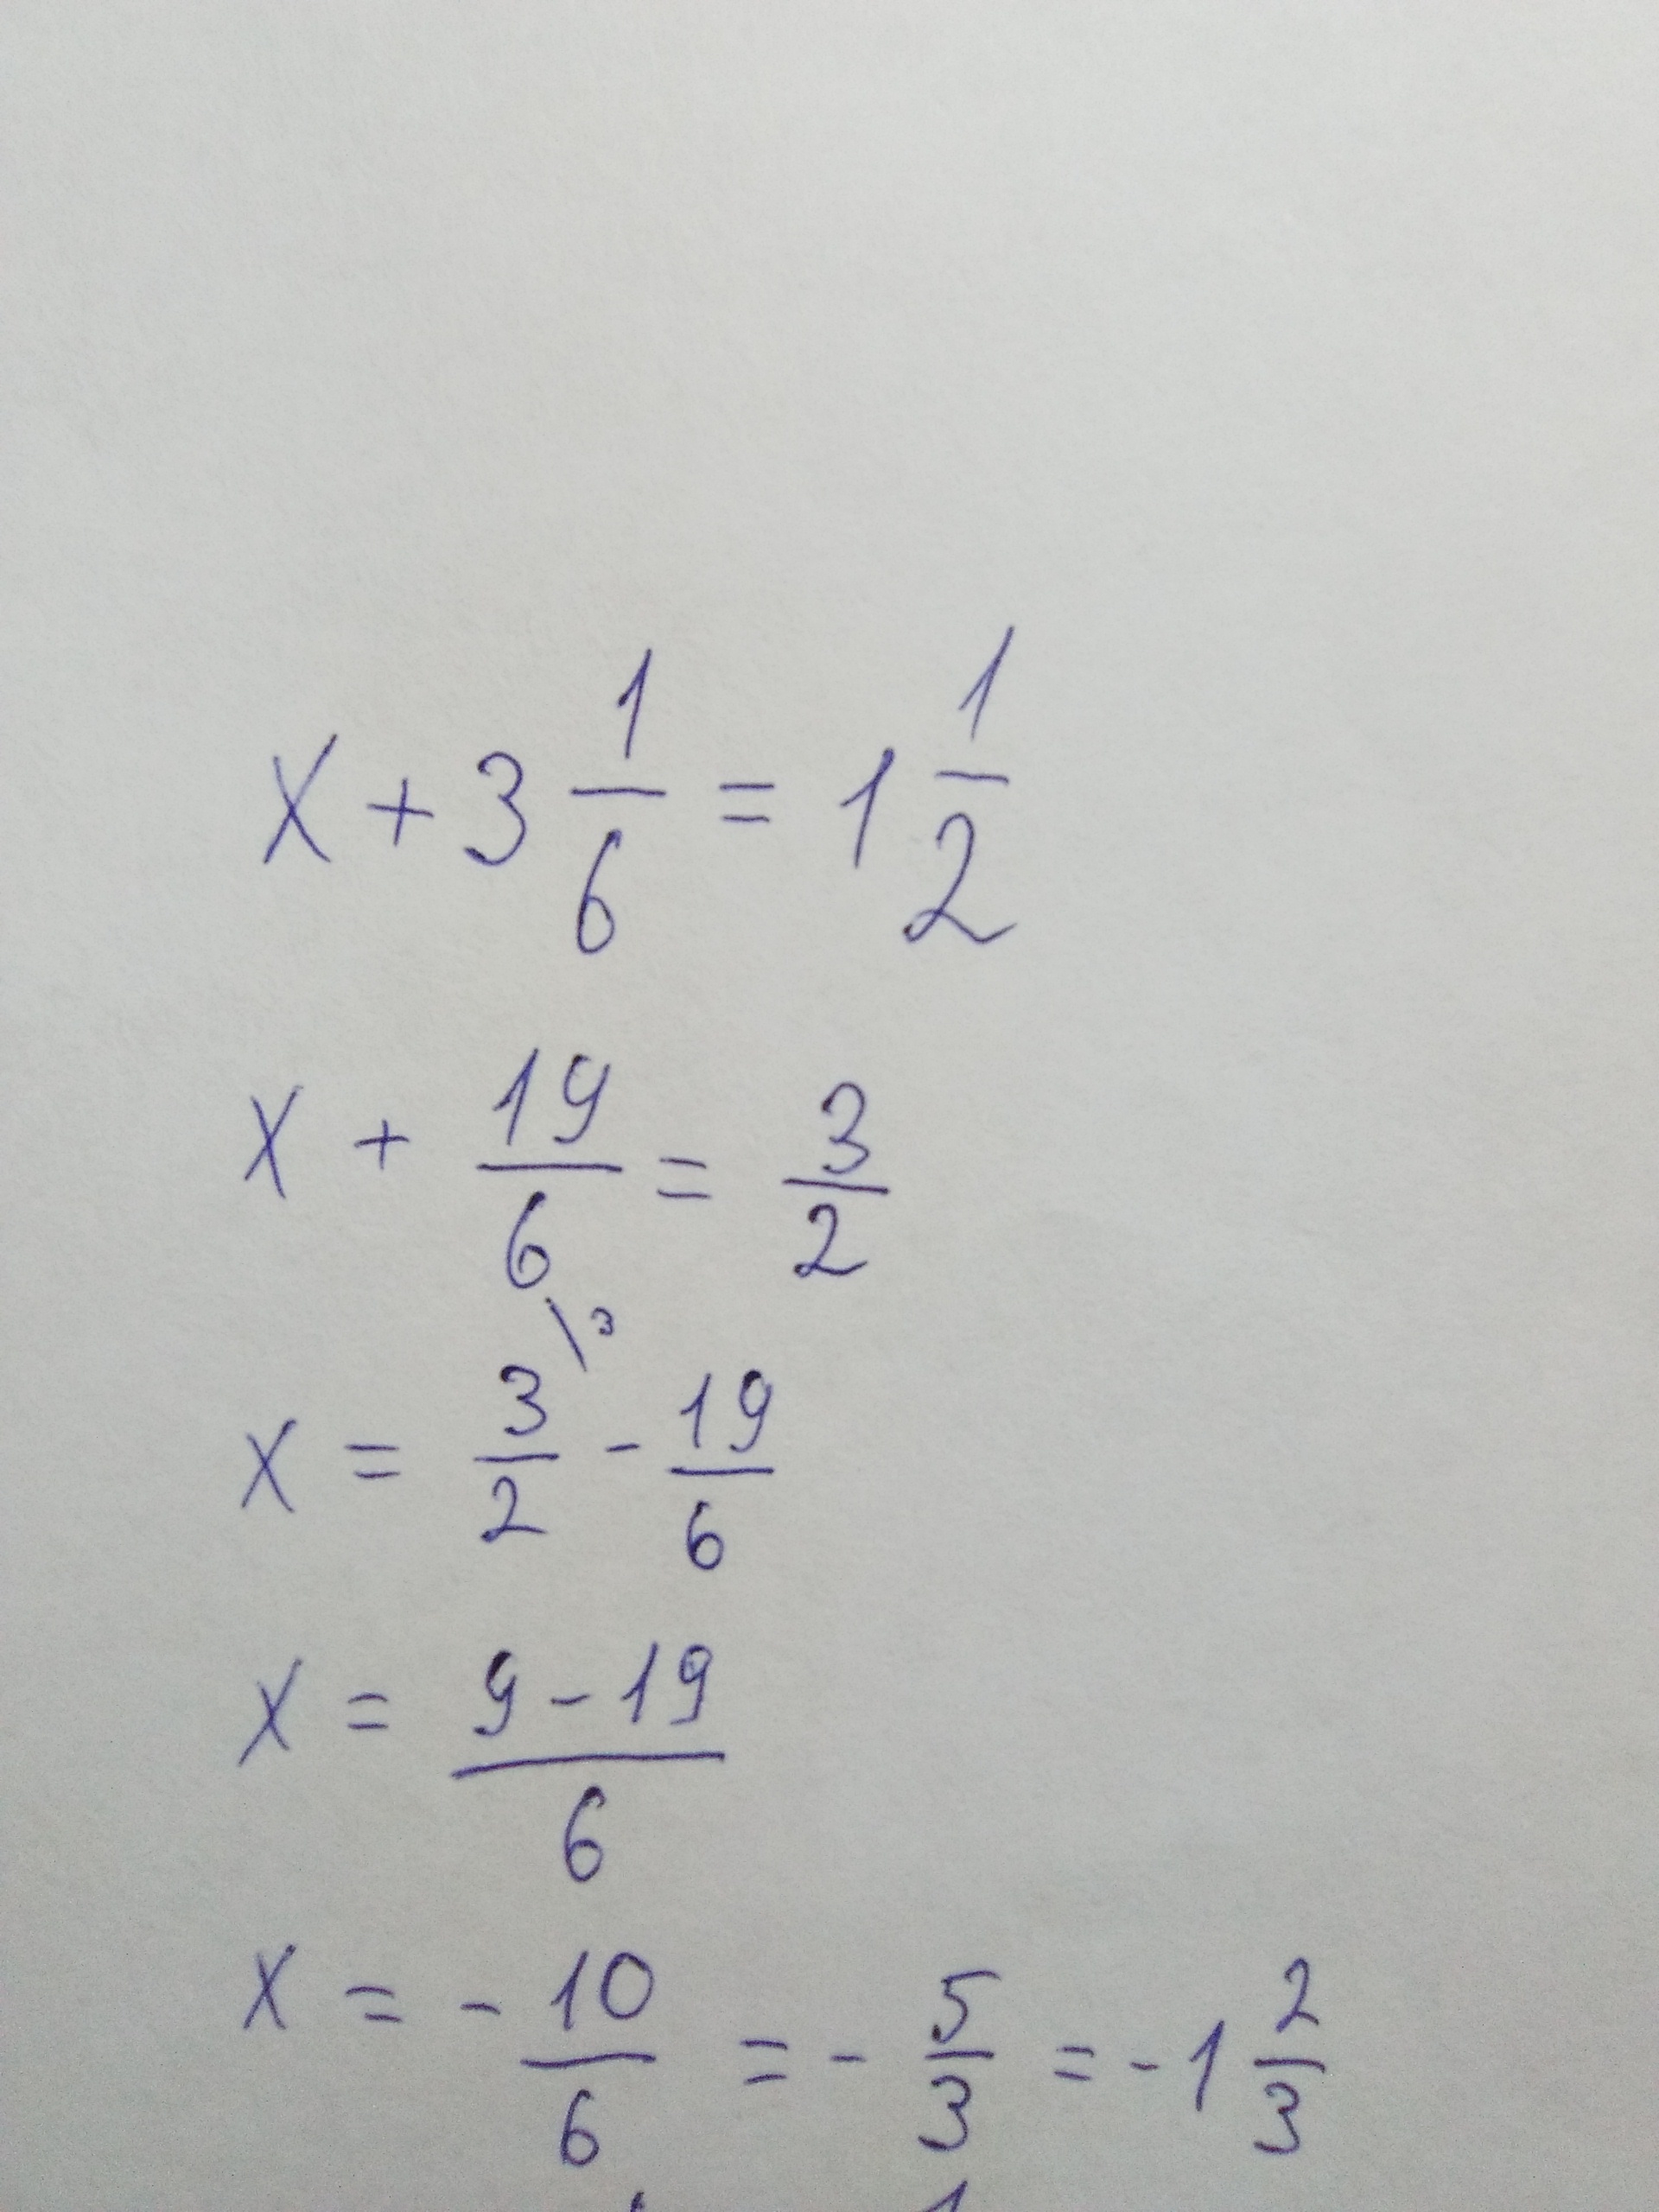 x + 3 1/6 = 1 1/2
x + 19/6 = 3/2
x = 3/2 \3 - 19/6
x = (9 - 19)/6
x = - 10/6 = - 5/3 = - 1 2/3